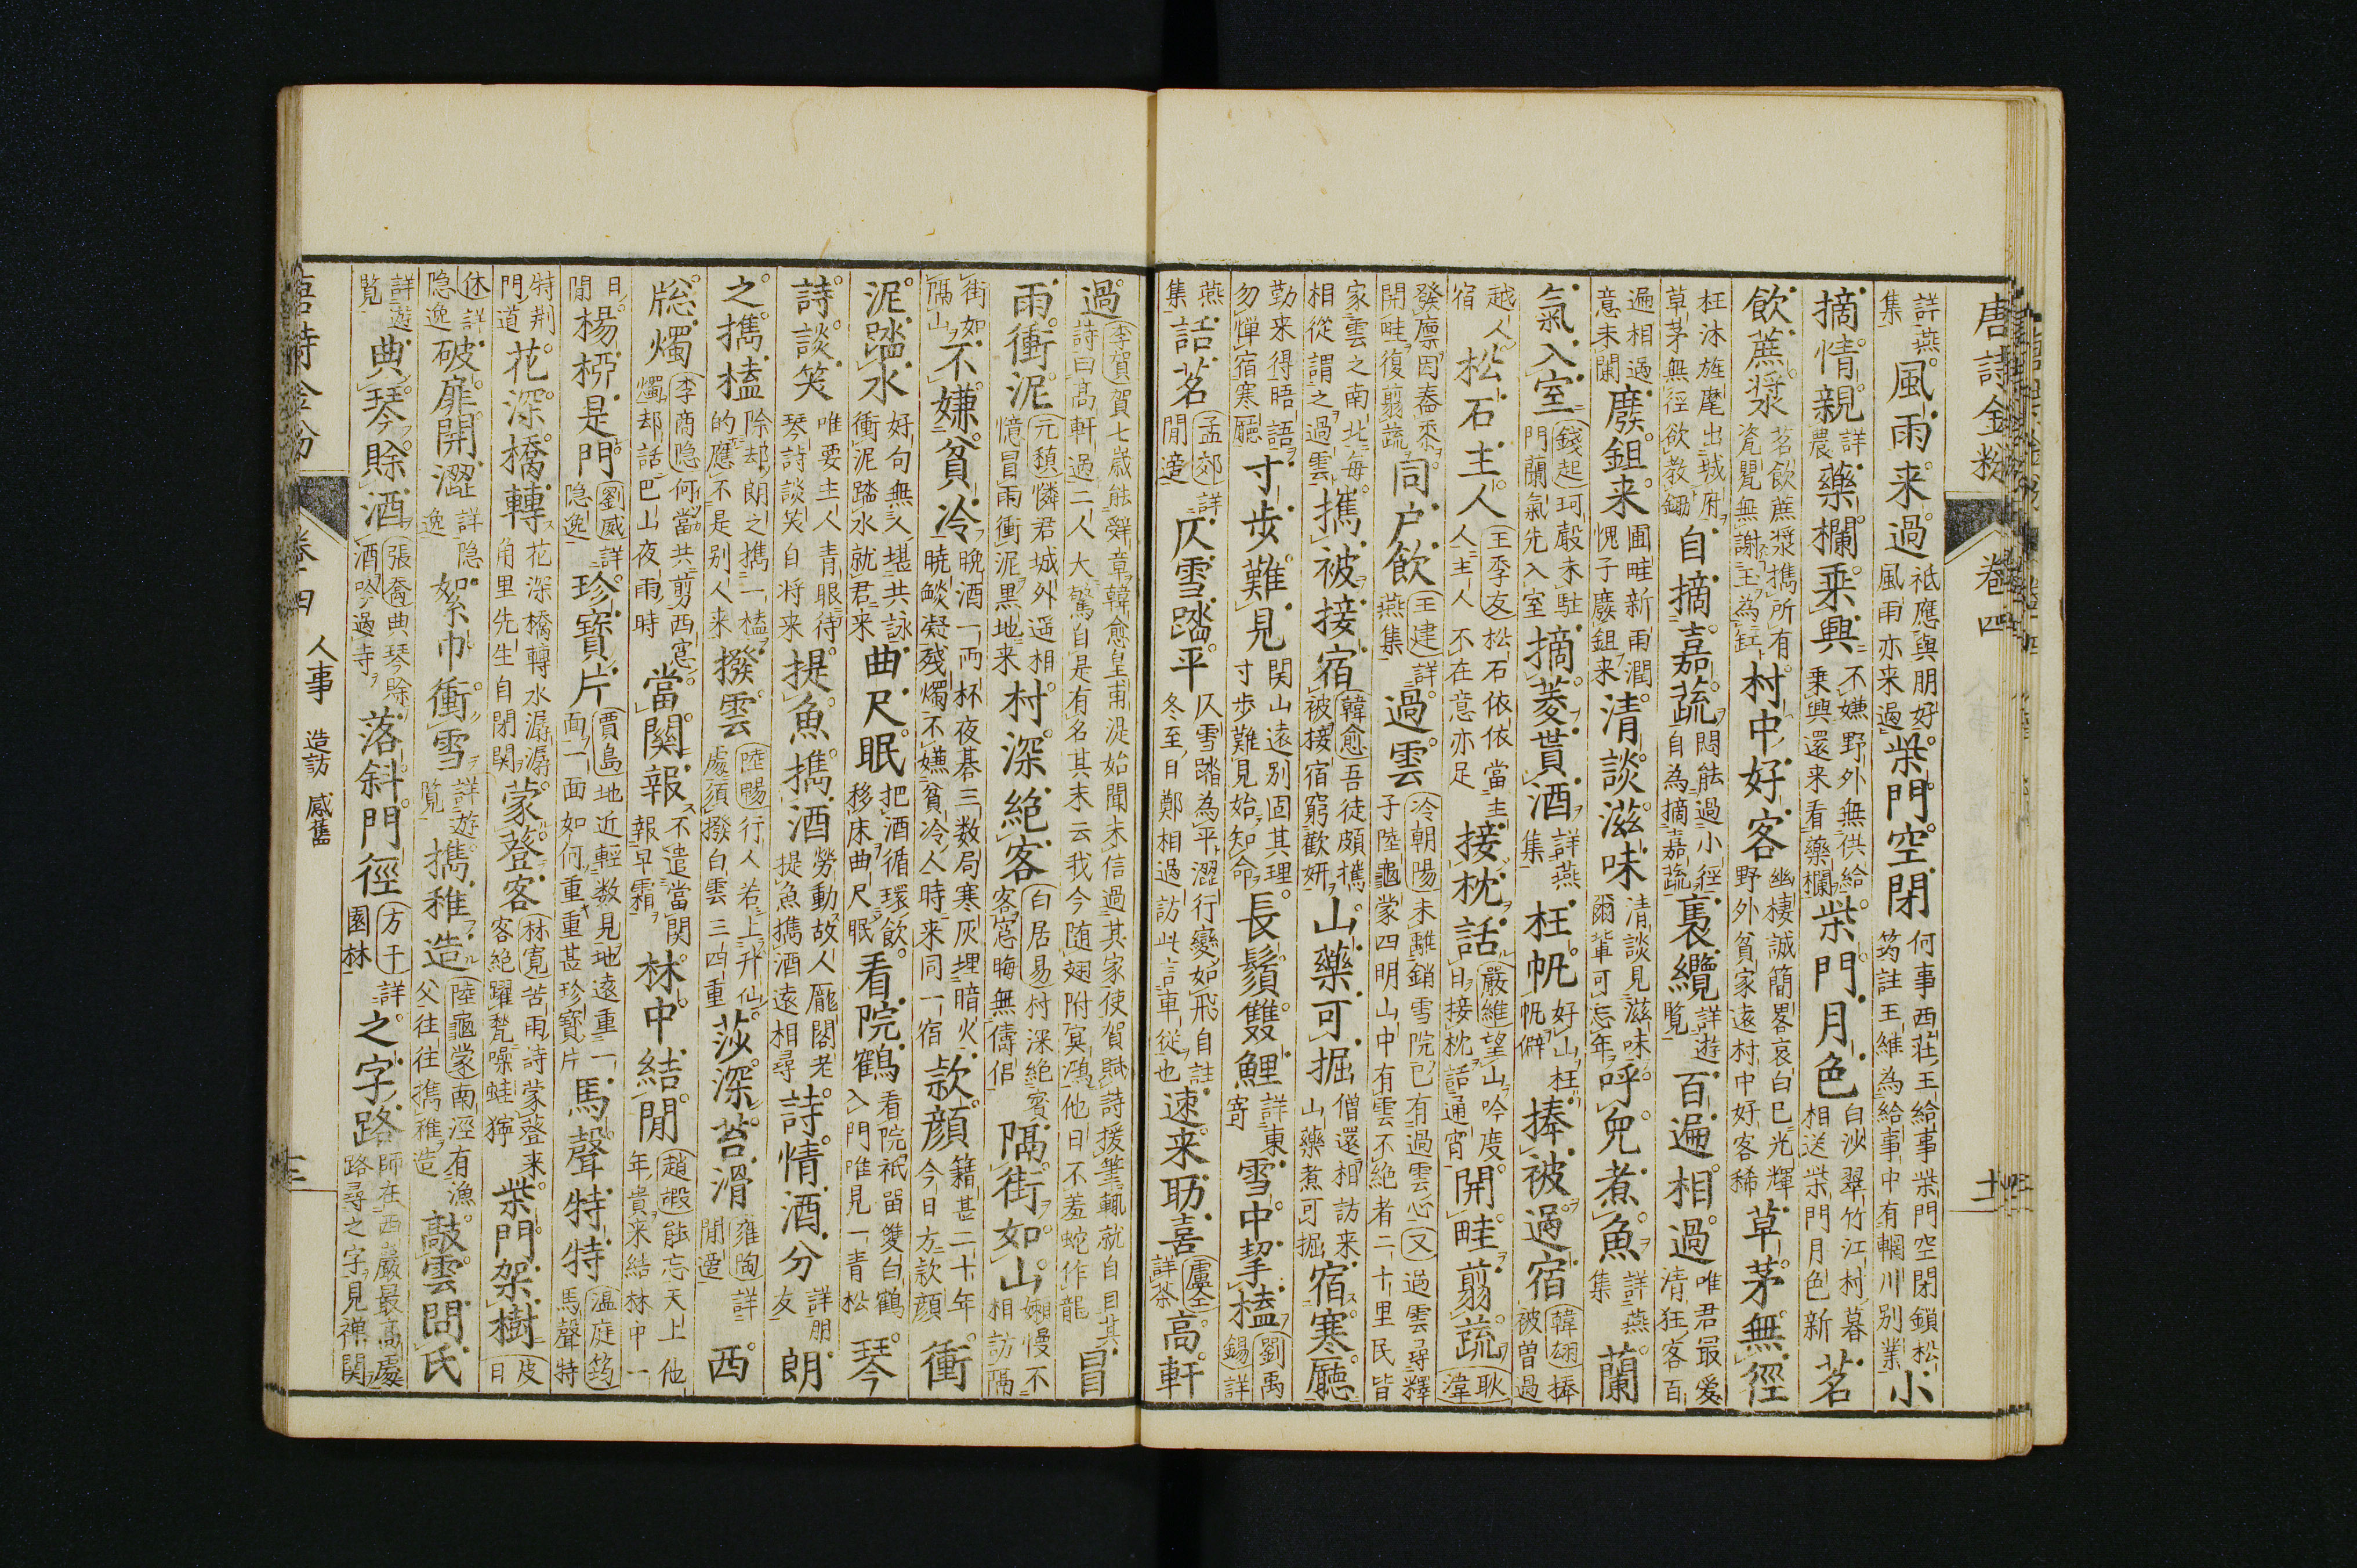 唐詩金粉 卷四
詳燕集 風雨来過 祗應與朋好風雨亦来過 柴門空閉 何事西莊王給事柴門空閉鎖松筠註王維為給事中有輞川別業 小
摘情親 詳農 藥欄乗興 不嫌野外無供給乗興還来看藥欄 柴門月色 白沙翠竹江村暮相送柴門月色新 茗
飲蔗漿 茗飲蔗漿擕所有瓷甖無謝玉為缸 村中好客 幽棲誠簡畧衰白已光輝野外貧家遠村中好客稀 草茅無徑
枉沐旌麾出城府草茅無徑欲教鋤 自摘嘉蔬 悶能過小徑自為摘嘉蔬 裏纜 詳遊覧 百遍相過 唯君最愛清狂客百
遍相過意未闌 廢鉏来 圃畦新雨潤愧子廢鉏来 清談滋味 清談見滋味爾輩可忘年 呼兒煮魚 詳燕集 蘭
氣入室 錢起珂聲未駐門蘭氣先入室 摘菱貰酒 詳燕集 枉帆 好山枉帆僻 捧被過宿 韓翃捧被曽過
越人宿 松石主人 王季友松石依依當主人主人不在意亦足 接枕話 嚴維望山吟度日接枕話通宵 開畦翦蔬 耿湋
發廪因舂黍開畦復翦蔬 同户飲 王建詳燕集 過雲 冷朝陽未離銷雪院已有過雲心又過雲尋釋子陸龜蒙四明山中有雲不絶者二十里民皆
家雲之南北每相從謂之過雲 擕被接宿 韓愈吾徒頗擕被接宿窮歡妍 山藥可掘 僧還相訪来山藥煮可掘 宿寒廳
勤来得晤語勿憚宿寒廳 寸步難見 関山遠别固其理寸步難見始知命 長鬚雙鯉 詳東寄 雪中挈榼 劉禹錫詳
燕集 話茗 孟郊詳閒遊 仄雪踏平 仄雪踏為平澀行變如飛自註冬至日鄭相過訪此言車從也 速来助喜 盧仝詳茶 高軒
過 李賀賀七歳能辭章韓愈皇甫湜始聞未信過其家使賀賦詩援筆輒就自目其詩曰高軒過二人大驚自是有名其末云我今随翅附冥鴻他日不羞蛇作龍 冒
雨衝泥 元稹憐君城外遥相憶冒雨衝泥黒地来 村深絶客 白居易村深絶賓客窓晦無儔侣 隔街如山 嬾慢不相訪隔
街如隔山 不嫌貧冷 晩酒一両杯夜碁三数局寒灰埋暗火曉燄凝残燭不嫌貧冷人時来同一宿 款顔 籍甚二十年今日方款顔 衝
泥踏水 好句無人堪共詠衝泥踏水就君来 曲尺眠 把酒循環飲移床曲尺眠 看院鶴 看院祗留雙白鶴入門唯見一青松 琴
詩談笑 唯要主人青眼待琴詩談笑自将来 提魚擕酒 勞動故人龐閣老提魚擕酒遠相尋 詩情酒分 詳朋友 朗
之擕榼 除却朗之擕一榼的應不是别人来 撥雲 陸暢行人若上升仙處須撥白雲三四重 莎深苔滑 雍陶詳閒遊 西
窓燭 李商隐何當共剪西窓燭却話巴山夜雨時 當関報 不遣當関報早霜 林中結閒 趙嘏能忘天上他年貴来結林中一
日閒 楊椏是門 劉威詳隐逸 珍寶片 賈島地近輕数見地遠重一面一面如何重重甚珍寶片 馬聲特特 温庭筠馬聲特
特荆門道 花深橋轉 花深橋轉水潺潺角里先生自閉関 蒙登客 林寛苦雨詩蒙登客絶躍甃噪蛙獰来 柴門架樹 皮日
休詳隐逸 破扉開澀 詳隐逸 絮巾衝雪 詳遊覧 擕稚造 陸龜蒙南涇有漁父往往擕稚造 敲雲問氏
詳遊覧 典琴賖酒 張喬典琴賖酒吟過寺 落斜門徑 方干詳園林 之字路 師在西巖最高處路尋之字見禅関
唐詩金粉 卷四 人事 造訪 感舊 十三